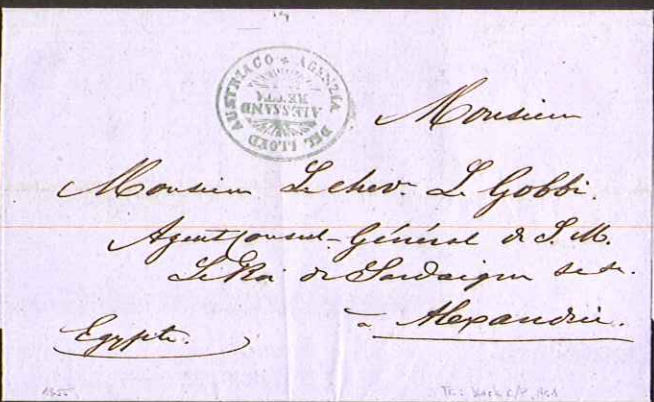 AGENZIA DEL LLOYD AUSTRIACO
ALESSAND
RETTA
Monsieur
Monsieur Le chevr L. Gobbi.
Agent Consul-Général de S. M.
Le Roi de Sardaigne &c &c.
à Alexandrie.
Egypte.
1855